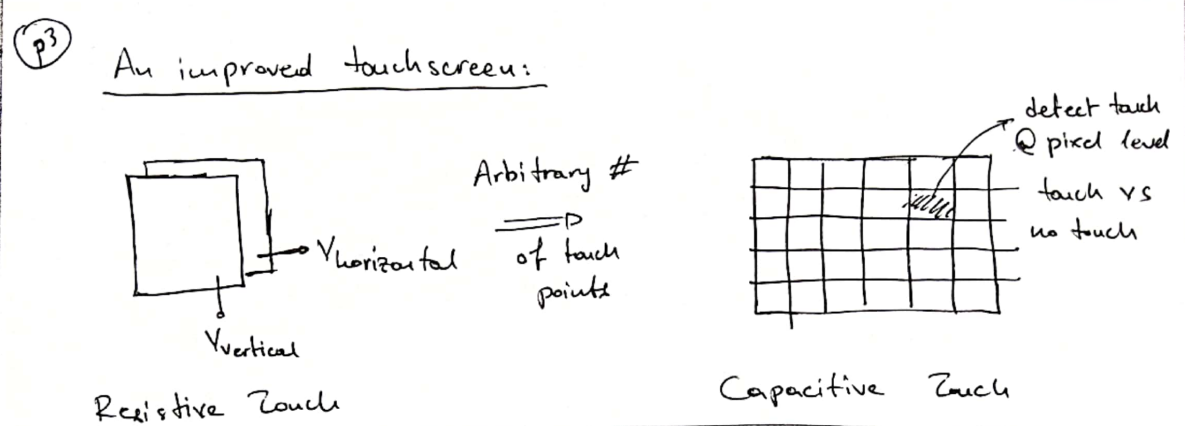 p3
An improved touchscreen:
Vhorizontal
Vvertical
Resistive Touch
Arbitrary #
of touch
points
detect touch
@ pixel level
touch vs
no touch
Capacitive Touch